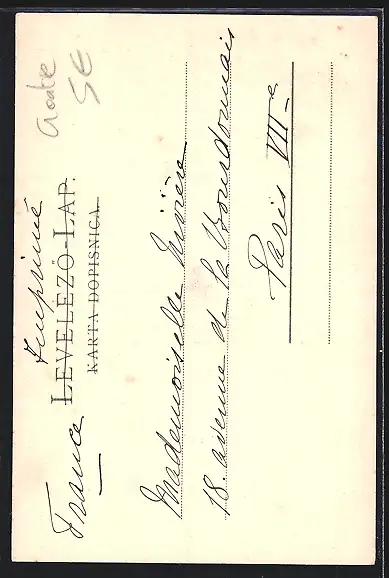 Imprimé
France
LEVELEZŐ-LAP.
KARTA DOPISNICA.
Mademoiselle
18 avenue de la Bourdonnais
Paris VIIe